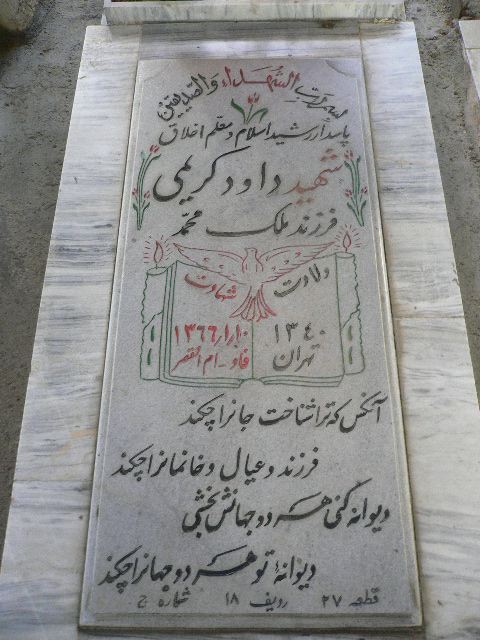 بسم رب الشهداء والصدیقین
پاسدار رشید اسلام و معلم اخلاق
شهید داود کریمی
فرزند ملک محمد
ولادت شهادت
۱۳۴۰ ۱۳۶۶/۱/۱۰
تهران فاو - ام القصر
آنکس که تراشناخت جانراچکند
فرزند و عیال و خانمانراچکند
دیوانه کنی هر دو جهانش بخشی
دیوانهٔ تو هر دو جهانراچکند
قطعه ۲۷ ردیف ۱۸ شماره ج